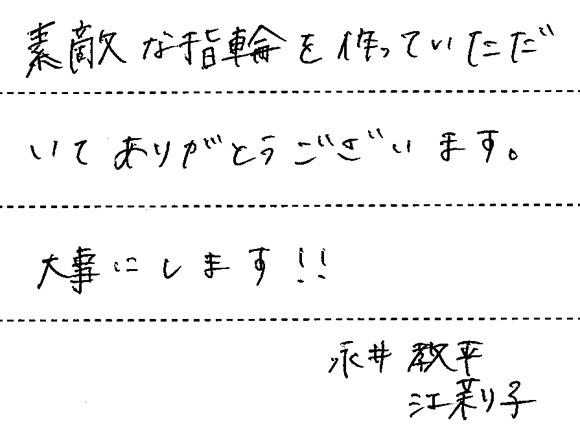 素敵な指輪を作っていただ
いてありがとうございます。
大事にします!!
永井 教平
江莉子